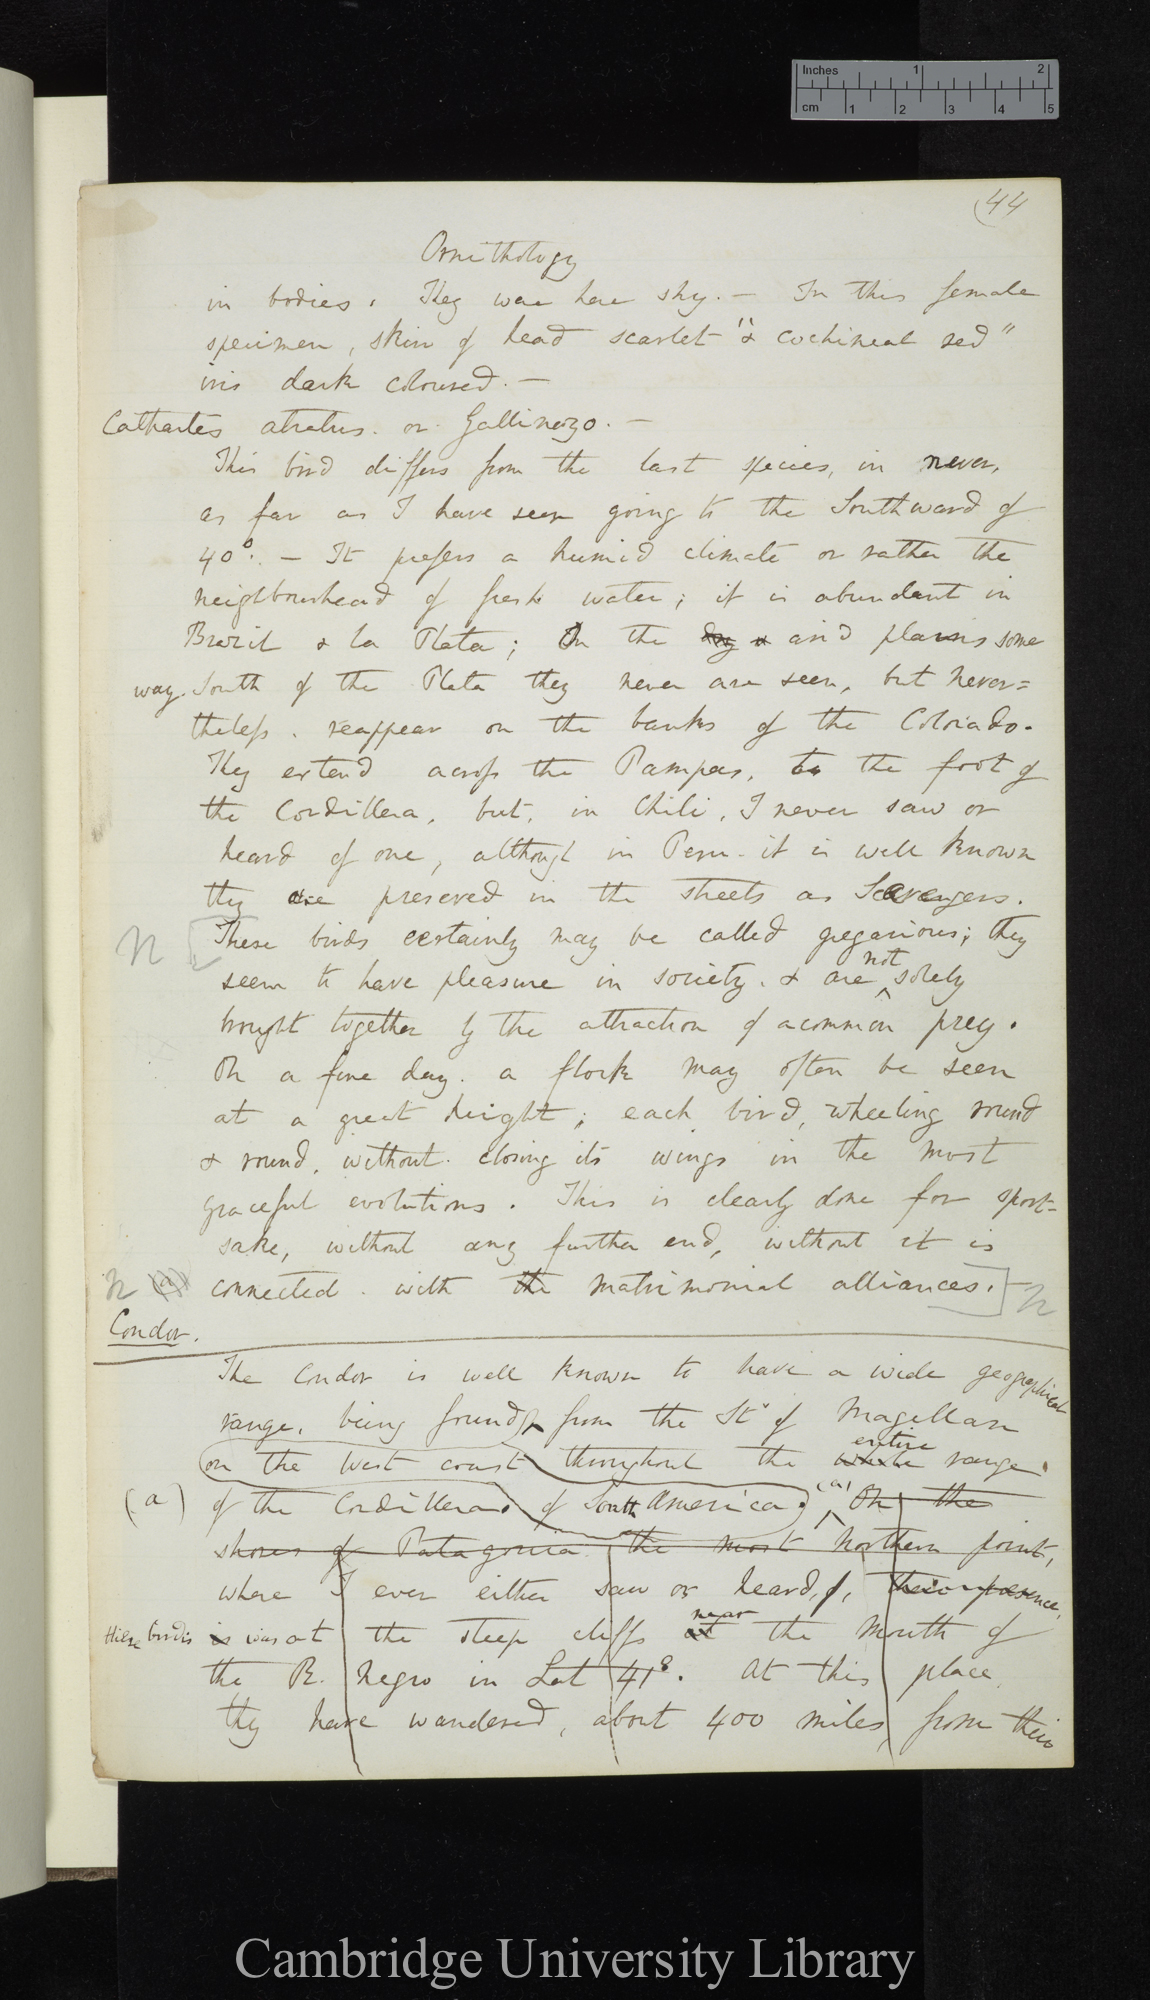 Inches 1 2
cm 1 2 3 4 5
(44
Ornithology
in bodies. They were here shy. — In this female
specimen, skin of head scarlet "& cochineal red"
iris dark coloured. —
Cathartes atratus. or Gallinazo. —
This bird differs from the last species, in never,
as far as I have seen going to the Southward of
40°. — It prefers a humid climate or rather the
neighbourhead of fresh water; it is abundant in
Brazil & la Plata; On the dry & arid plains some
way South of the Plata they never are seen, but never=
theless. reappear on the banks of the Colorado.
They extend across the Pampas, to the foot of
the Cordillera, but, in Chili, I never saw or
heard of one, although in Peru it is well known
they are preserved in the streets as Scavengers.
n [These birds certainly may be called gregarious; they
seem to have pleasure in society. & are not solely
brought together by the attraction of a common prey.
On a fine day. a flock may often be seen
at a great height; each bird, wheeling round
& round, without closing its wings in the most
graceful evolutions. This is clearly done for sport-
sake, without any further end, without it is
n (a) connected with the matrimonial alliances.] n
Condor.
The Condor is well known to have a wide geographical
range, being found, from the St.s of Magellan
on the West coast throughout the whole entire range
(a) of the Cordilleras. of South America. (a) On the
shores of Patagonia the most Northern point,
where I ever either saw or heard, of, their presence,
these birds is was at the steep cliffs at near the mouth of
the R. Negro in Lat 41°. At this place
they have wandered, about 400 miles, from their
Cambridge University Library